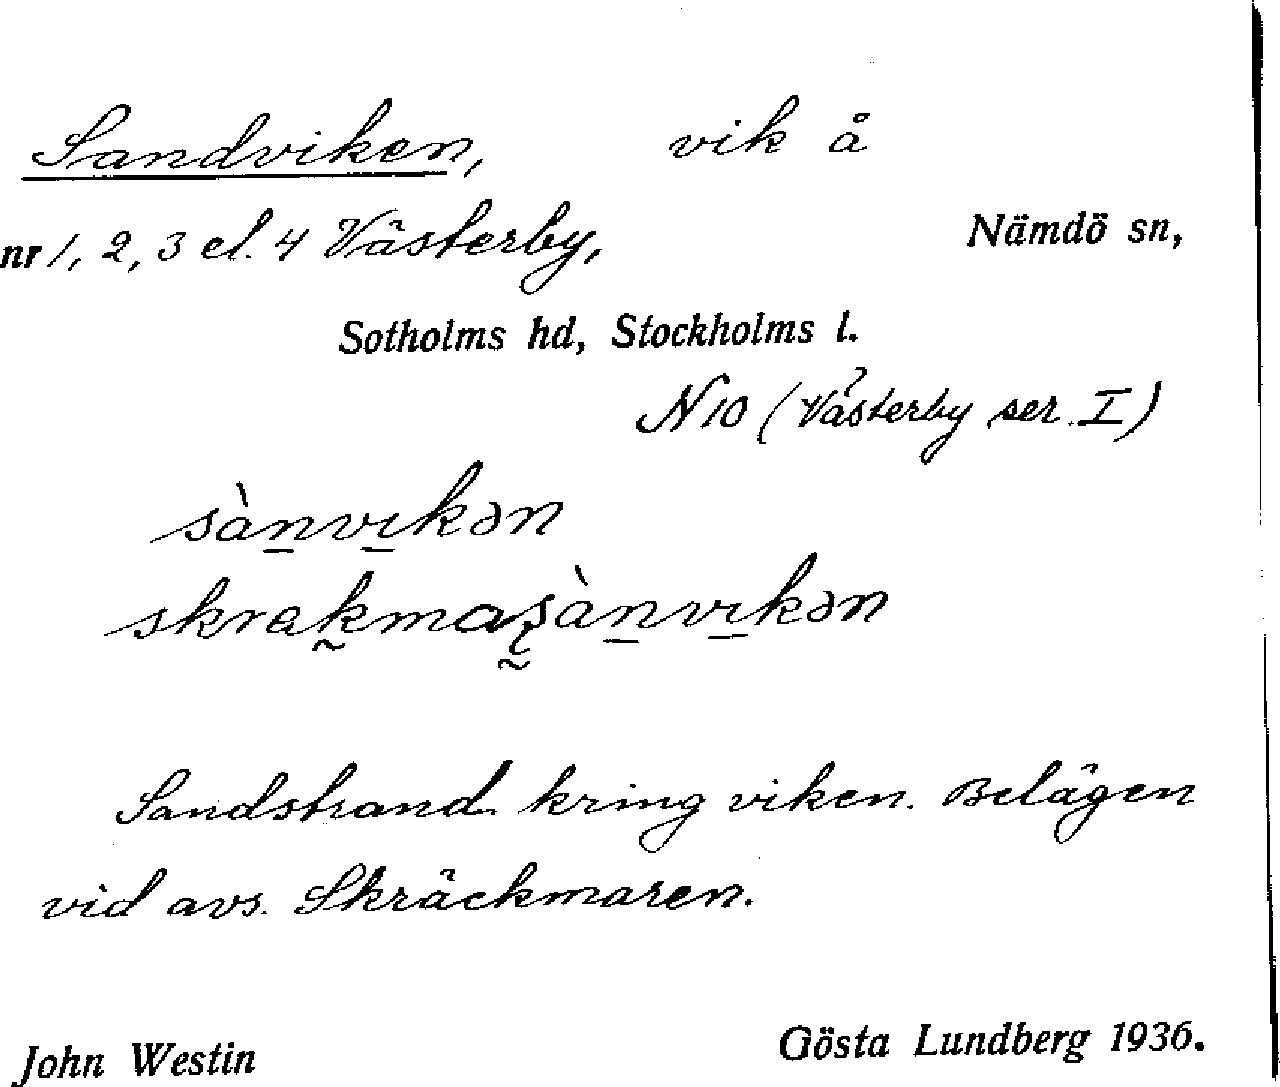 Sandviken, vik å
nr 1, 2, 3 el. 4 Västerby, Nämdö sn,
Sotholms hd, Stockholms l.
N 10 (Västerby ser. I)
sànvıkən
skrakmaʂànvıkən
Sandstrand kring viken. Belägen
vid avs. Skräckmaren.
John Westin Gösta Lundberg 1936.